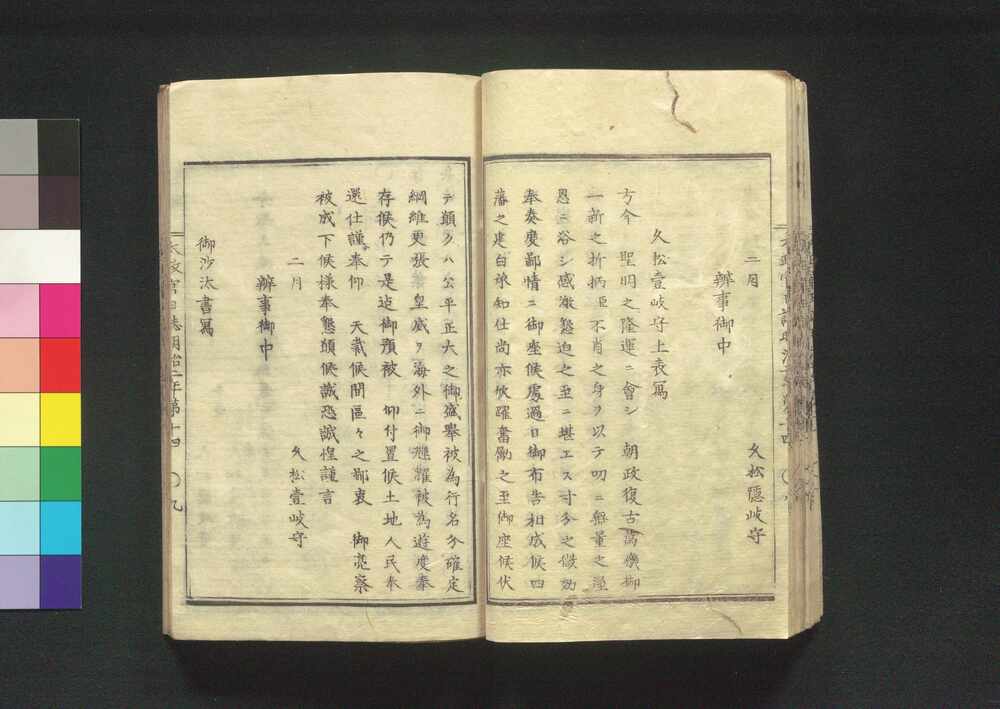 二月
久松隠岐守
辨事御中
久松壹岐守上表写
方今 聖明之隆運ニ會シ 朝政復古萬機御
一新之折柄臣不肖之身ヲ以テ叨ニ無量之渥
恩ニ浴シ感激懇迫之至ニ堪エス寸分之微効
奉奏度鄙情ニ御座候處過日御布告相成候四
藩之建白承知仕尚亦欣躍奮勵之至御座候伏
テ願クハ公平正大之御盛擧被為行名分確定
綱維更張 皇威ヲ海外ニ御耀被為遊度奉
存候仍テ是迠御預被 仰付置候土地人民奉
還仕謹奉仰 天裁候間區々之鄙衷 御亮察
被成下候様奉懇願候誠恐誠惶謹言
二月
久松壹岐守
辨事御中
御沙汰書寫
太政官日誌明治二年第十四 〇九